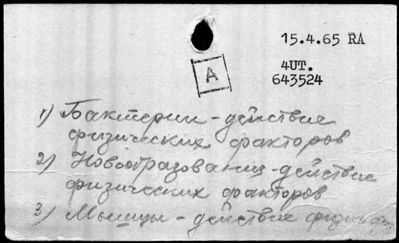 15.4.65 RA
4UT.
643524
A
1) Бактерии - действие
физических факторов
2) Новообразования - действие
физических факторов
3) Мышцы - действие